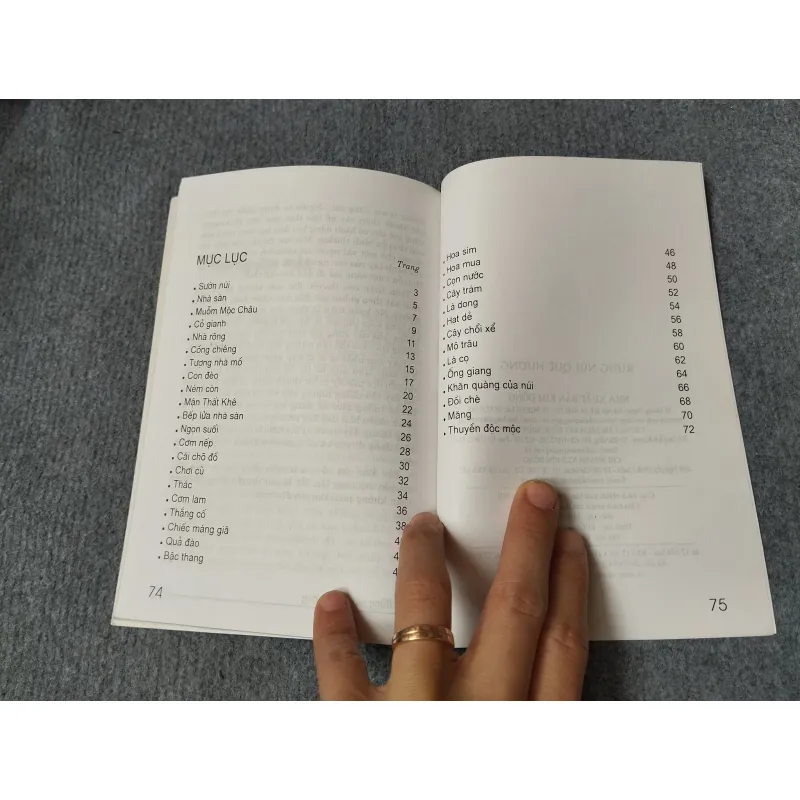 MỤC LỤC
Trang
• Sườn núi 3
• Nhà sàn 5
• Muỗm Mộc Châu 7
• Cỏ gianh 9
• Nhà rông 11
• Cồng chiêng 13
• Tượng nhà mồ 15
• Con đèo 17
• Ném còn 20
• Mận Thất Khê 22
• Bếp lửa nhà sàn 24
• Ngọn suối 26
• Cơm nếp 28
• Cái chõ đồ 30
• Chơi cù 32
• Thác 34
• Cơm lam 36
• Thắng cố 38
• Chiếc máng giã
• Quả đào
• Bậc thang
74
• Hoa sim 46
• Hoa mua 48
• Cọn nước 50
• Cây trám 52
• Lá dong 54
• Hạt dẻ 56
• Cây chổi xể 58
• Mõ trâu 60
• Lá cọ 62
• Ống giang 64
• Khăn quàng của núi 66
• Đồi chè 68
• Măng 70
• Thuyền độc mộc 72
75